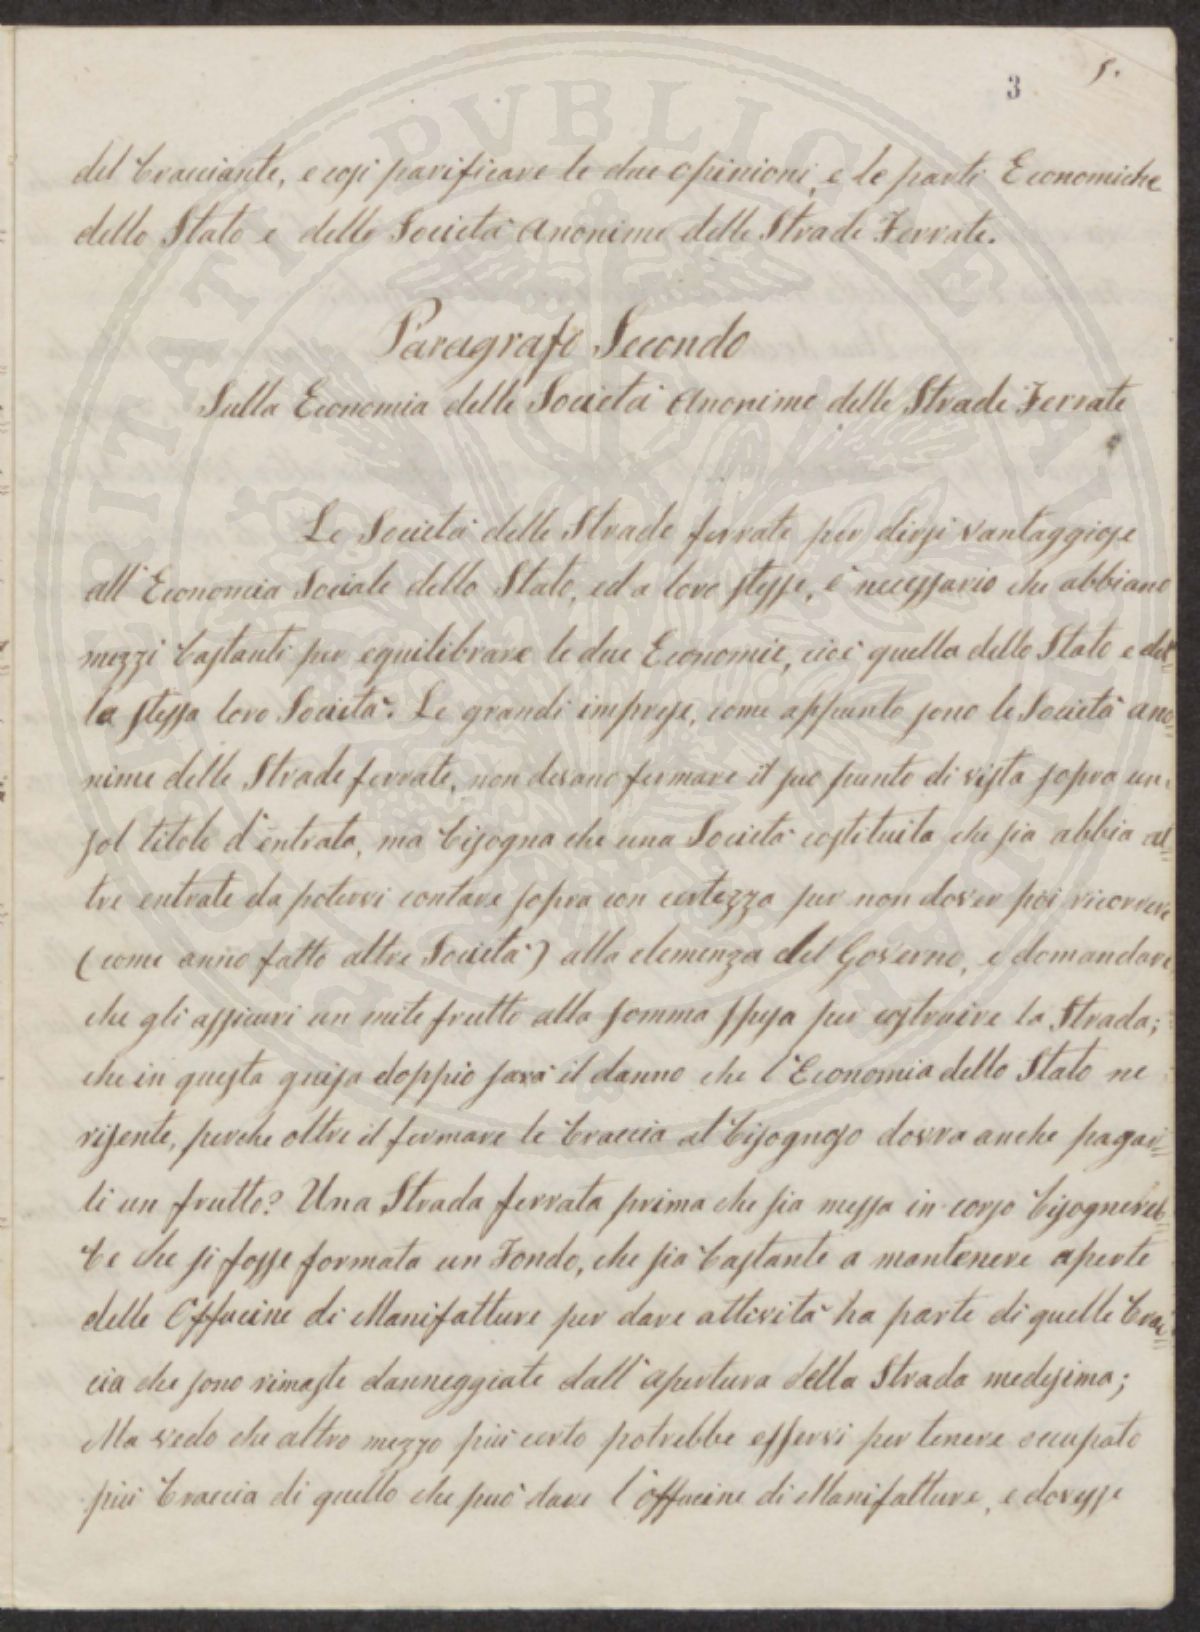 3 5.
del bracciante, e cosi parificare le due opinioni, e le parti Economiche
dello Stato e delle Società Anonime delle Strade Ferrate.
Paragrafo Secondo
Sulla Economia delle Società Anonime delle Strade Ferrate
Le Società delle Strade ferrate per dirsi vantaggiose
all'Economia Sociale dello Stato, ed a loro stesse, è necessario che abbiano
mezzi bastanti per equilibrare le due Economie, cioè quella dello Stato e del=
la stessa loro Società. Le grandi imprese, come appunto sono le Società ano=
nime delle Strade ferrate, non devano fermare il suo punto di vista sopra un
sol titolo d'entrata, ma bisogna che una Società costituita che sia abbia al=
tre entrate da potervi contare sopra con certezza per non dover poi ricorrere
(come anno fatto altre Società) alla clemenza del Governo, e domandare
che gli assicuri un mite frutto alla somma spesa per costruire la Strada;
che in questa guisa doppio sarà il danno che l'Economia dello Stato ne
risente, perche oltre il fermare le braccia al bisognoso dovra anche pagar=
li un frutto? Una Strada ferrata prima che sia messa in corso bisognereb=
be che si fosse formata un Fondo, che sia bastante a mantenere aperte
delle Offucine di Manifatture per dare attività ha parte di quelle brac=
cia che sono rimaste danneggiate dall'apertura della Strada medesima;
Ma vedo che altro mezzo più certo potrebbe esservi per tenere occupato
più braccia di quello che può dare l'offucine di Manifatture, e dovesse
PVBLICAE VTILITATI